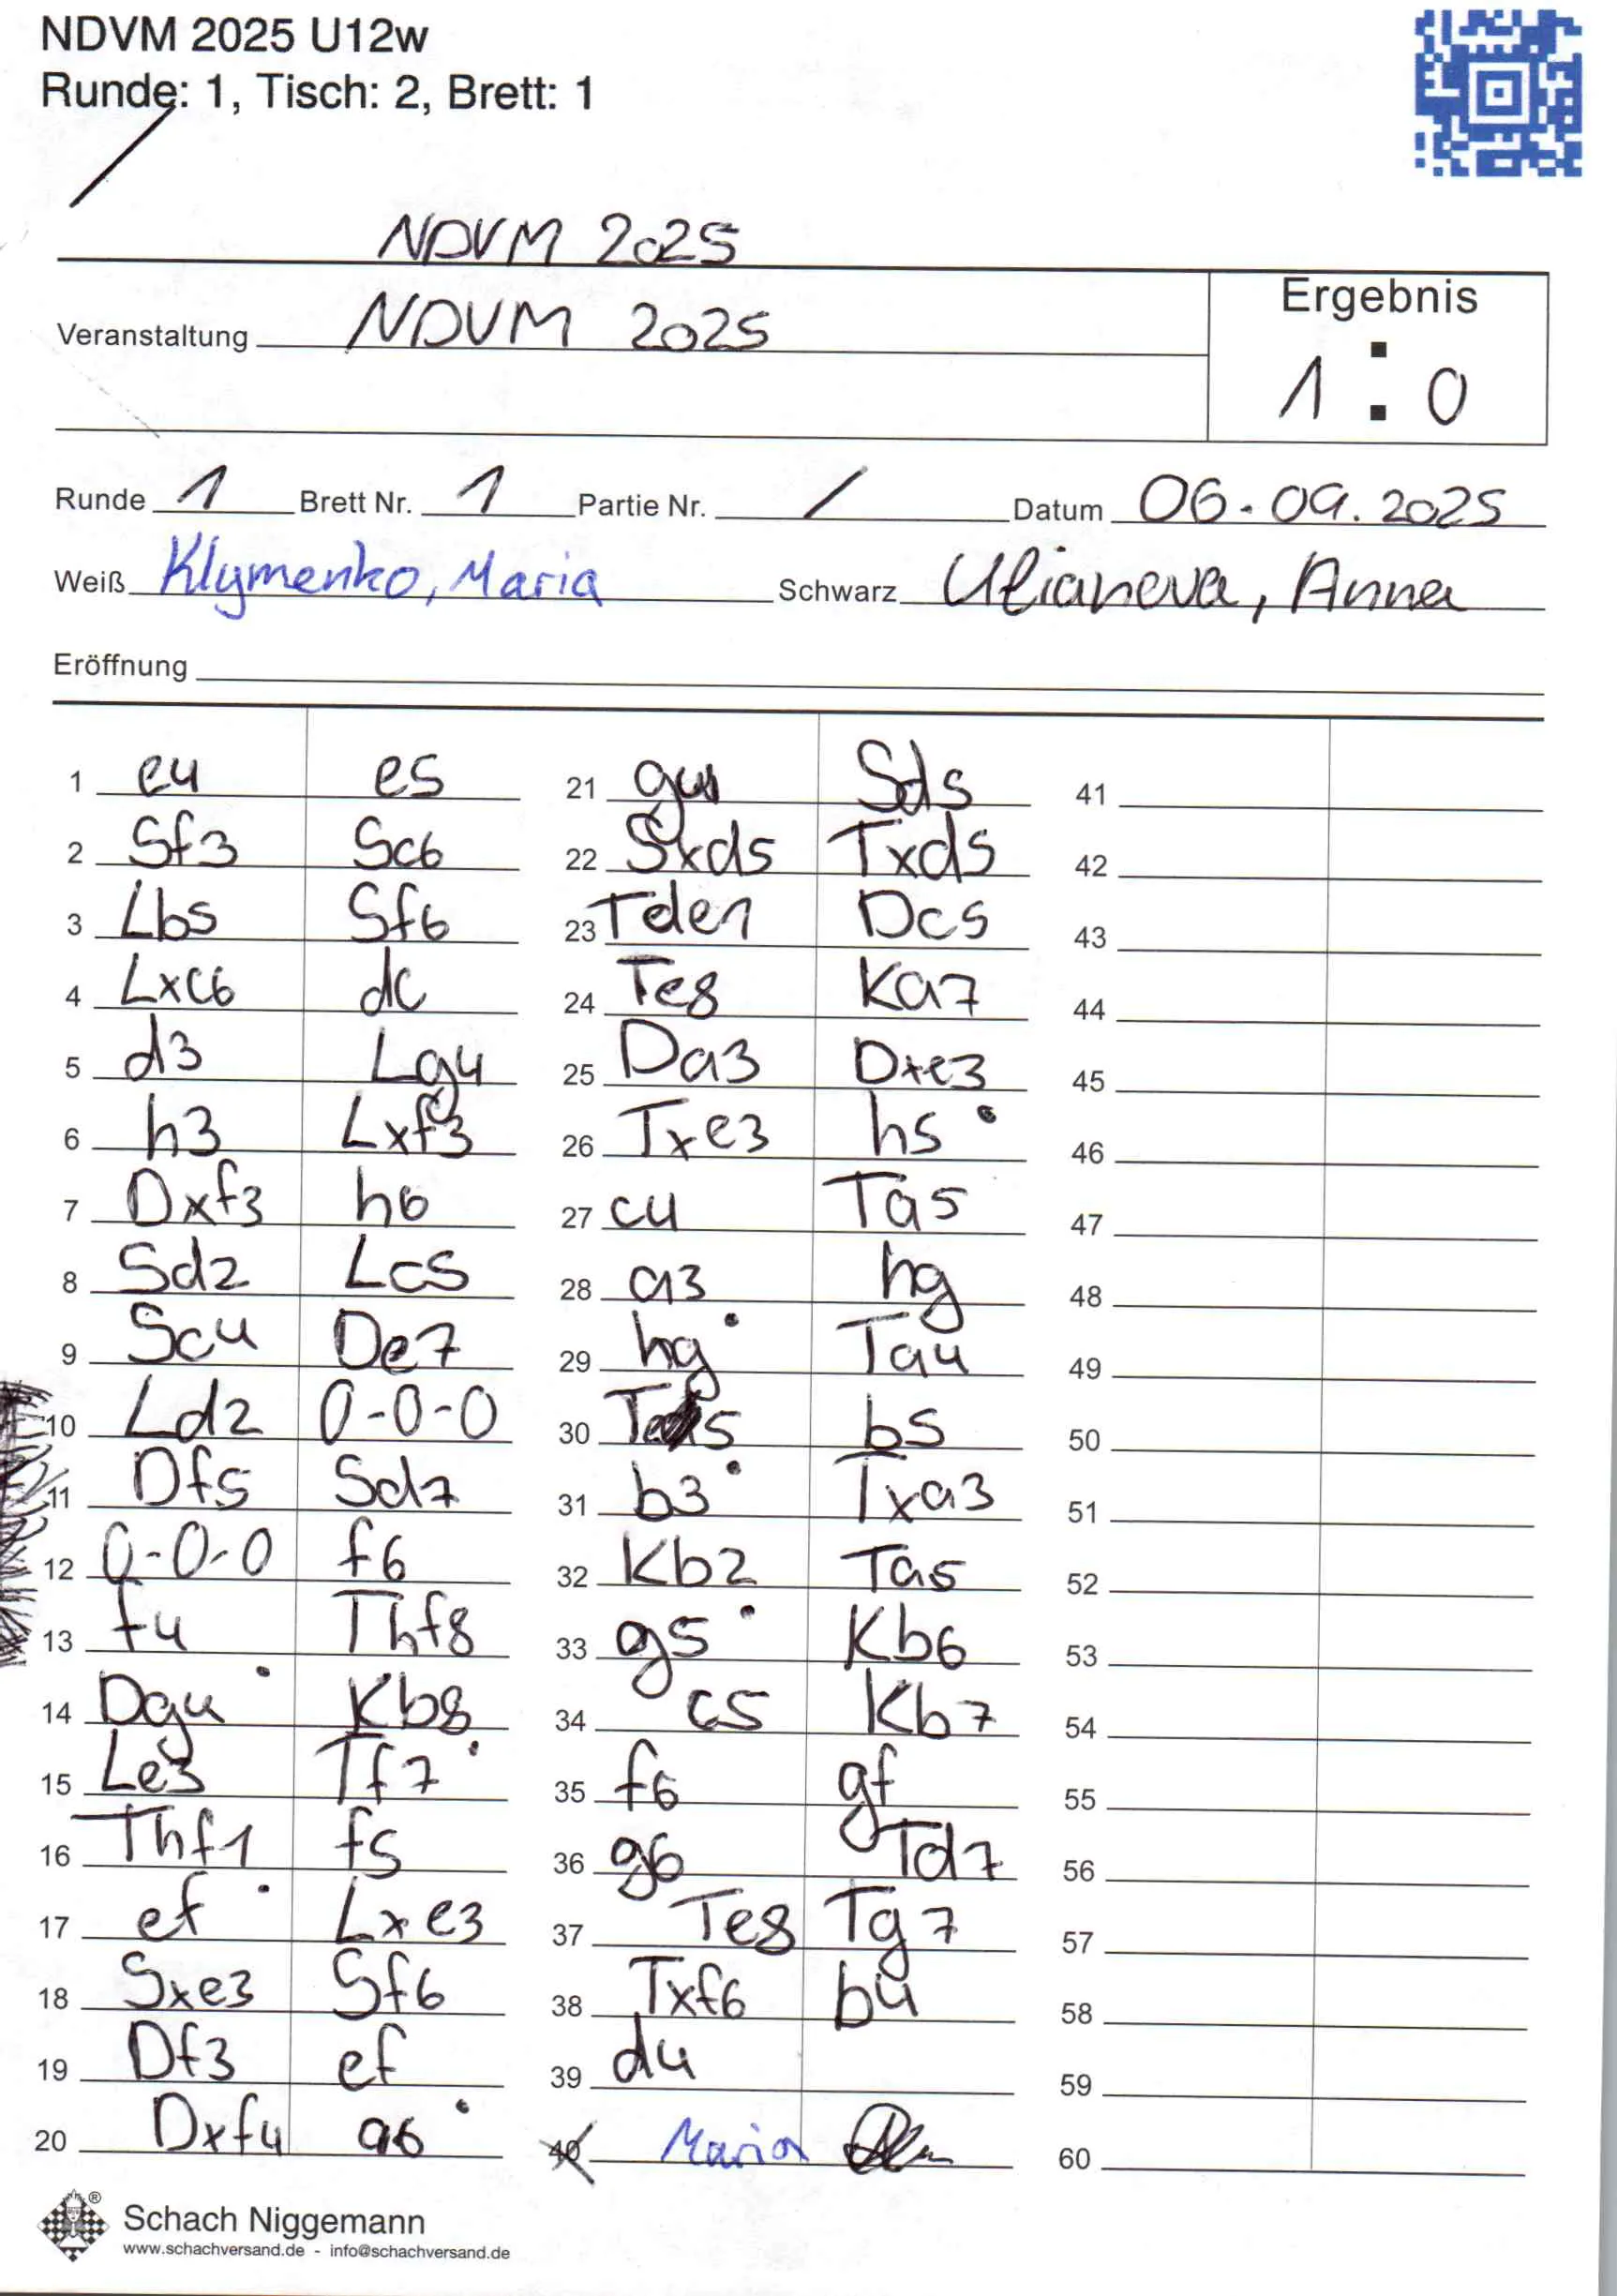 NDVM 2025 U12w
Runde: 1, Tisch: 2, Brett: 1
NDVM 2025
Veranstaltung NDVM 2025
Ergebnis
1 : 0
Runde 1 Brett Nr. 1 Partie Nr. / Datum 06.09.2025
Weiß Klymenko, Maria Schwarz Ulianova, Anna
Eröffnung
1 e4 e5
2 Sf3 Sc6
3 Lb5 Sf6
4 Lxc6 dc
5 d3 Lg4
6 h3 Lxf3
7 Dxf3 h6
8 Sd2 Lc5
9 Sc4 De7
10 Ld2 0-0-0
11 Df5 Sd7
12 0-0-0 f6
13 f4 Thf8
14 Dg4 Kb8
15 Le3 Tf7
16 Thf1 f5
17 ef Lxe3
18 Sxe3 Sf6
19 Df3 ef
20 Dxf4 a6
21 g4 Sd5
22 Sxd5 Txd5
23 Tde1 Dc5
24 Te8 Ka7
25 Da3 Dxe3
26 Txe3 h5
27 c4 Ta5
28 a3 hg
29 hg Ta4
30 b5
31 b3 Txa3
32 Kb2 Ta5
33 g5 Kb6
34 c5 Kb7
35 f6 gf
36 g6 Td7
37 Te8 Tg7
38 Txf6 b4
39 d4
40 Maria
41
42
43
44
45
46
47
48
49
50
51
52
53
54
55
56
57
58
59
60
Schach Niggemann
www.schachversand.de - info@schachversand.de